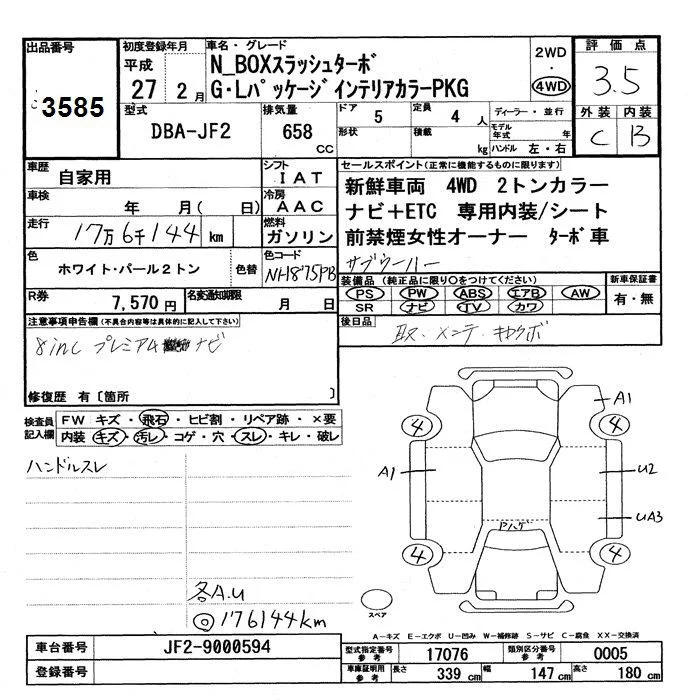 出品番号
3585
初度登録年月
平成
27 2月
車名・グレード
N_BOXスラッシュターボ
G・Lパッケージ インテリアカラーPKG
2WD
・
4WD
評価点
3.5
外装 内装
C B
型式
DBA-JF2
排気量
658
cc
ドア
5
形状
定員
4 人
積載
kg
ディーラー・並行
モデル年式 年
ハンドル 左・右
車歴
自家用
シフト
IAT
セールスポイント(正常に機能するものに限ります)
新鮮車両 4WD 2トンカラー
ナビ+ETC 専用内装/シート
前禁煙女性オーナー ターボ車
サブウーハー
車検
年 月( 日)
冷房
AAC
走行
17万6千144 km
燃料
ガソリン
色
ホワイト・パール2トン
色替
色コード
NH875PB
装備品(純正品に限り○をつけてください)
PS PW ABS エアB AW
SR ナビ TV カワ
新車保証書
有・無
R券
7,570 円
名変通知期限
月 日
後日品
取.メンテ.キロクボ
注意事項申告欄(不具合内容等は具体的に記入して下さい)
8inc プレミアム ナビ
修復歴 有〔箇所 〕
検査員記入欄
FW キズ・飛石・ヒビ割・リペア跡・×要
内装 キズ・汚レ・コゲ・穴・スレ・キレ・破レ
ハンドルスレ
各A.U
◎176144km
A1
4 4
A1 U2
UA3
Pハゲ
4 4
スペア
A-キズ E-エクボ U-凹み W-補修跡 S-サビ C-腐食 XX-交換済
車台番号
JF2-9000594
登録番号
型式指定番号 参考
17076
類別区分番号 参考
0005
車庫証明用 参考
長さ 339 cm
幅 147 cm
高さ 180 cm